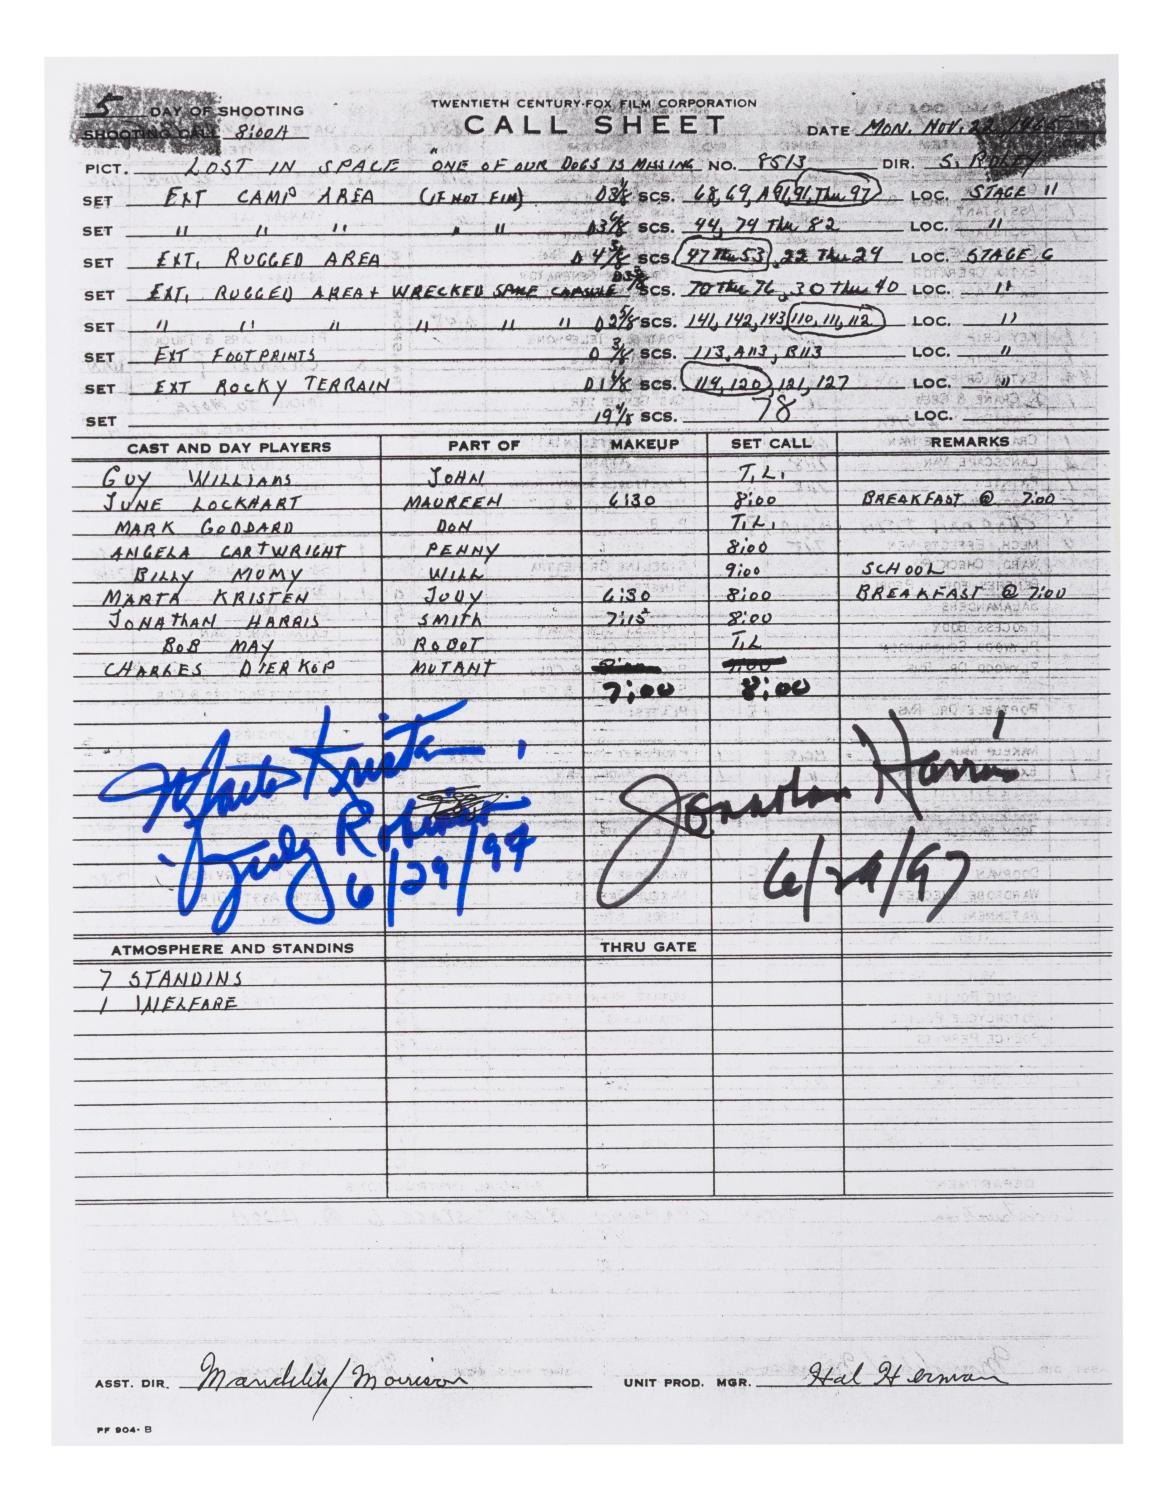 5 DAY OF SHOOTING
TWENTIETH CENTURY-FOX FILM CORPORATION
SHOOTING CALL 8:00A
CALL SHEET
DATE MON. NOV. 22 1965
PICT. LOST IN SPACE "ONE OF OUR DOGS IS MISSING NO. 8513 DIR.
SET EXT CAMP AREA (IF NOT FIN) SCS. 68, 69, A91, 91, Thru 97 LOC. STAGE 11
SET " " " " " SCS. 44, 79 Thru 82 LOC. "
SET EXT. RUGGED AREA D 4 3/8 SCS. 47 Thru 53, 22 Thru 29 LOC. STAGE 6
SET EXT. RUGGED AREA + WRECKED SPACE CAPSULE SCS. 70 Thru 76, 30 Thru 40 LOC. "
SET " " " " " " D 2 5/8 SCS. 141, 142, 143, 110, 111, 112 LOC. "
SET EXT FOOTPRINTS D 3/8 SCS. 113, A113, B113 LOC. "
SET EXT ROCKY TERRAIN SCS. 119, 120, 121, 127 LOC. "
SET 19 4/8 SCS. 78 LOC.
CAST AND DAY PLAYERS PART OF MAKEUP SET CALL REMARKS
GUY WILLIAMS JOHN T.L.
JUNE LOCKHART MAUREEN 6:30 8:00 BREAKFAST @ 7:00
MARK GODDARD DON T.L.
ANGELA CARTWRIGHT PENNY 8:00
BILLY MUMY WILL 9:00 SCHOOL
MARTA KRISTEN JUDY 6:30 8:00 BREAKFAST @ 7:00
JONATHAN HARRIS SMITH 7:15 8:00
BOB MAY ROBOT T.L
CHARLES DIERKOP MUTANT 8:00 9:00
7:00 8:00
Marta Kristen,
Judy Robinson
6/29/97
Jonathan Harris
6/29/97
ATMOSPHERE AND STANDINS THRU GATE
7 STANDINS
1 WELFARE
ASST. DIR. Mandelik/Morrison UNIT PROD. MGR. Hal Herman
PF 904-B